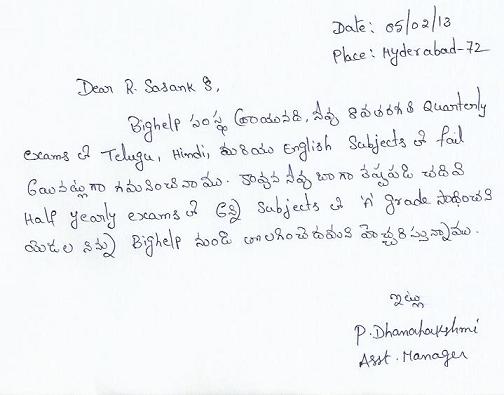 Date: 05/02/13
Place: Hyderabad-72
Dear R. Sasank S,
Bighelp సంస్థ నీవు Quarterly
exams లో Telugu, Hindi, మరియు English Subjects లో fail
గమనించినాము. కావున నీవు బాగా చదివి
Half yearly exams లో అన్ని Subjects లో 'A' grade సాధించని
యెడల నిన్ను Bighelp నుండి తొలగించెదమని హెచ్చరిస్తున్నాము.
ఇట్లు
P. Dhanalakshmi
Asst. Manager